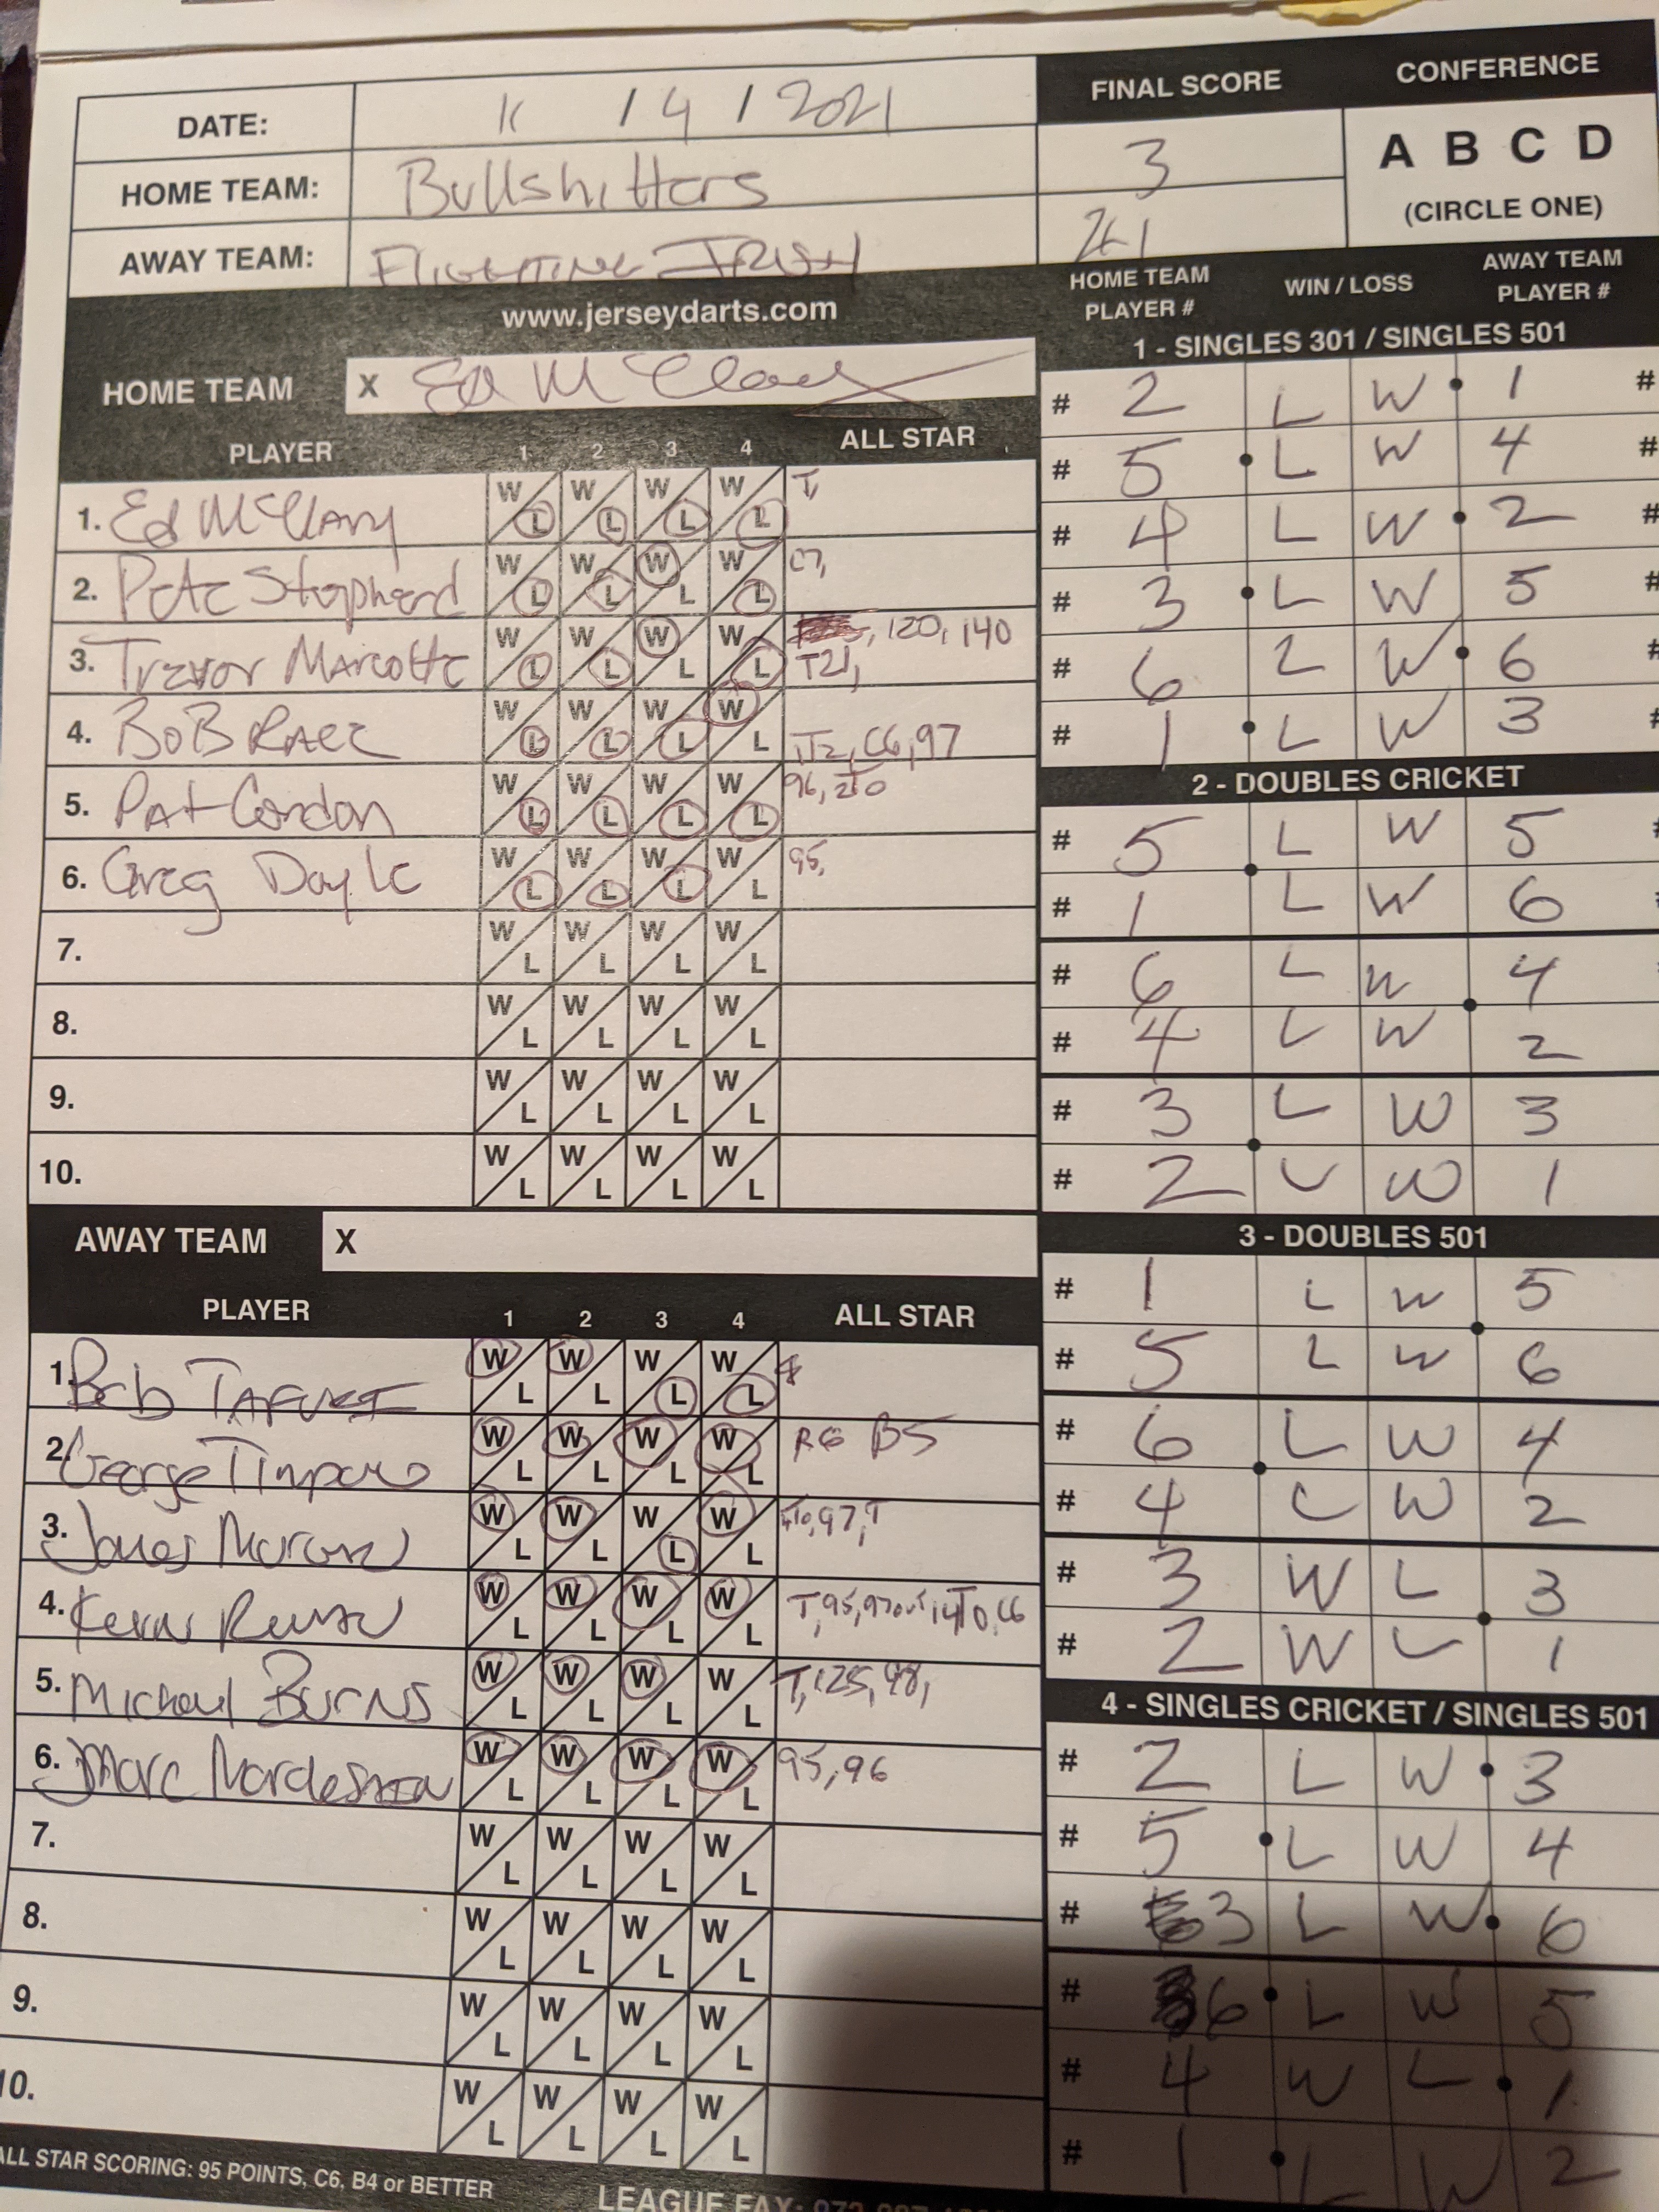 DATE: 11 / 4 / 2021
HOME TEAM: Bullshitters
AWAY TEAM: FIGHTING IRISH
FINAL SCORE
3
21
CONFERENCE
A B C D
(CIRCLE ONE)
www.jerseydarts.com
HOME TEAM X Ed McClary
PLAYER 1 2 3 4 ALL STAR
1. Ed McClary W L W L W L W L T,
2. Pete Stephard W L W L W L W L C7,
3. Trevor Marcotte W L W L W L W L , 120, 140
T21,
4. BoB RACE W L W L W L W L 1T2, C6, 97
5. PAt Condon W L W L W L W L 96, 2T0
6. Greg Doyle W L W L W L W L 95,
7. W L W L W L W L
8. W L W L W L W L
9. W L W L W L W L
10. W L W L W L W L
AWAY TEAM X
PLAYER 1 2 3 4 ALL STAR
1. Bob TAFURI W L W L W L W L
2. George Timparo W L W L W L W L R6 B5
3. James W L W L W L W L 97, T
4. Kevin W L W L W L W L T, 95, 97out, 14T0, C6
5. Michael Burns W L W L W L W L T, 125, 98,
6. Marc W L W L W L W L 95, 96
7. W L W L W L W L
8. W L W L W L W L
9. W L W L W L W L
10. W L W L W L W L
ALL STAR SCORING: 95 POINTS, C6, B4 or BETTER
LEAGUE FAX:
HOME TEAM PLAYER # WIN / LOSS AWAY TEAM PLAYER #
1 - SINGLES 301 / SINGLES 501
# 2 L W 1 #
# 5 L W 4 #
# 4 L W 2 #
# 3 L W 5 #
# 6 L W 6 #
# 1 L W 3 #
2 - DOUBLES CRICKET
# 5 L W 5
# 1 L W 6
# 6 L W 4
# 4 L W 2
# 3 L W 3
# 2 L W 1
3 - DOUBLES 501
# 1 L W 5
# 5 L W 6
# 6 L W 4
# 4 L W 2
# 3 W L 3
# 2 W L 1
4 - SINGLES CRICKET / SINGLES 501
# 2 L W 3
# 5 L W 4
# 3 L W 6
# 6 L W 5
# 4 W L 1
# 1 L W 2